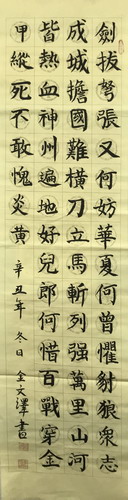 劍拔弩張又何妨華夏何曾懼豺狼衆志
成城擔國難橫刀立馬斬列强萬里山河
皆熱血神州遍地好兒郎何惜百戰穿金
甲縱死不敢愧炎黄
辛丑年冬日金文澤書